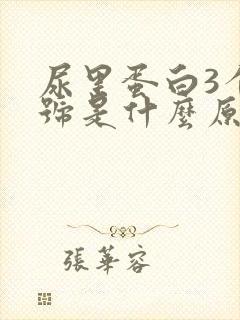 尿里蛋白3个
號是什麼原
張華容